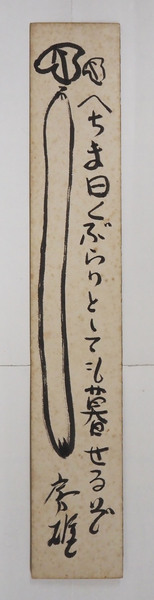 へちま曰くぶらりとしても暮せるが
房雄